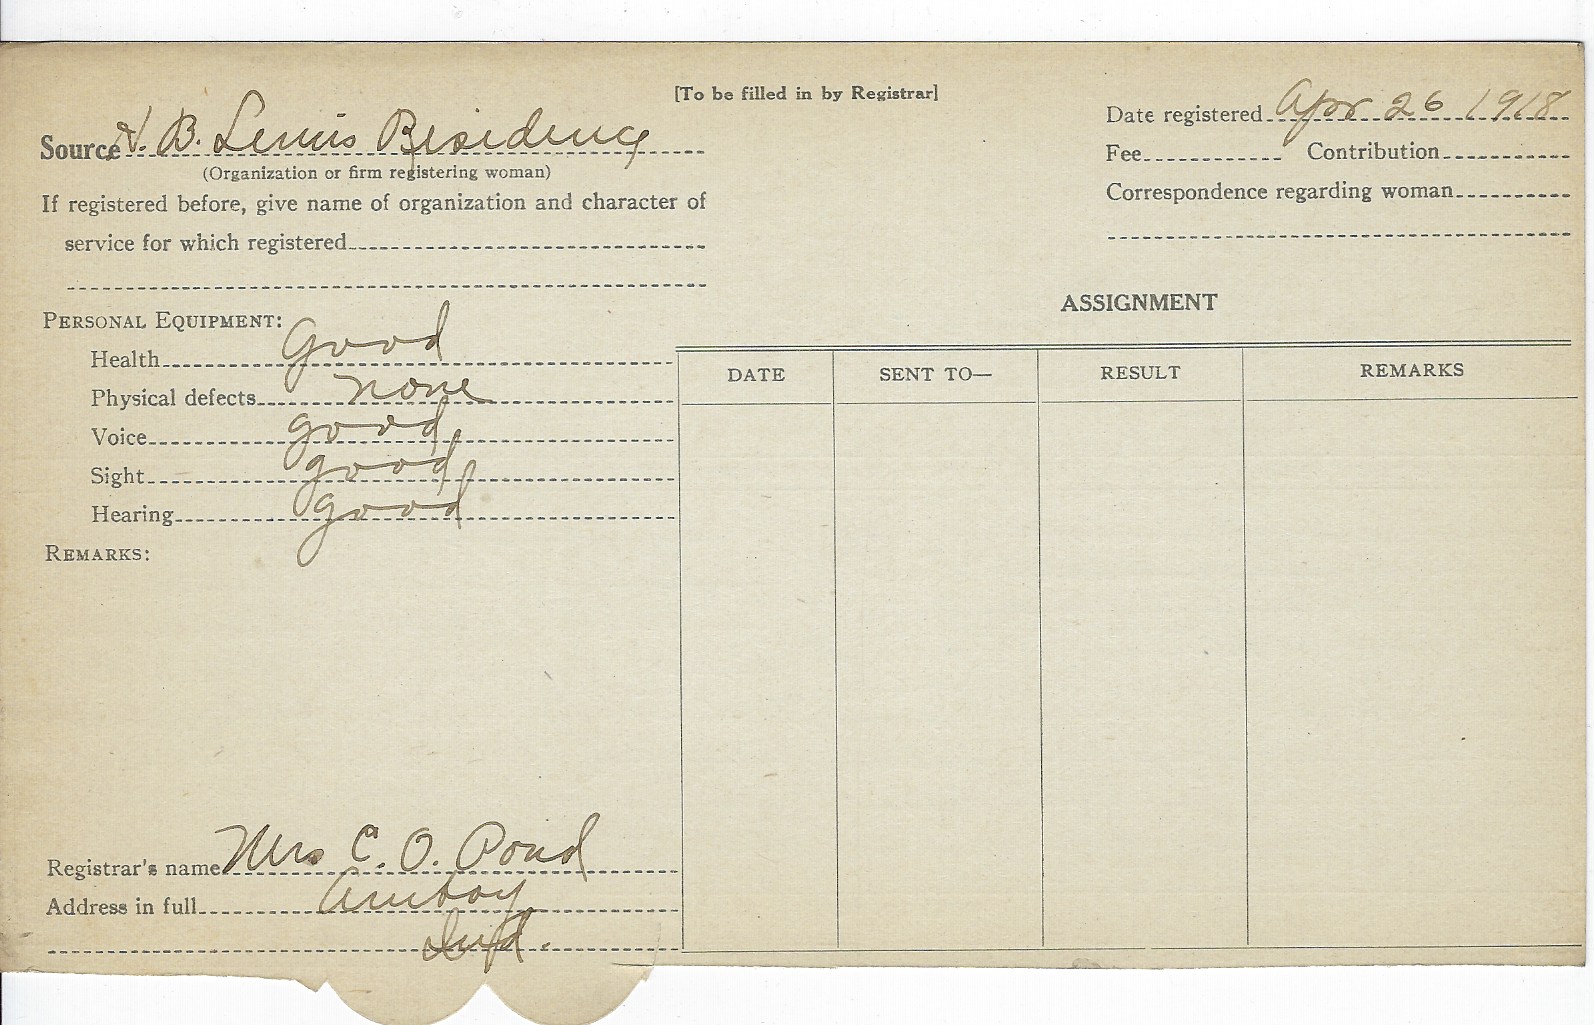 [To be filled in by Registrar]
Source H. B. Lewis Residence
(Organization or firm registering woman)
If registered before, give name of organization and character of
service for which registered
Date registered Apr 26 1918
Fee Contribution
Correspondence regarding woman
PERSONAL EQUIPMENT:
Health Good
Physical defects none
Voice good
Sight good
Hearing good
REMARKS:
Registrar's name Mrs C. O. Pond
Address in full Amboy
Ind.
ASSIGNMENT
DATE SENT TO— RESULT REMARKS